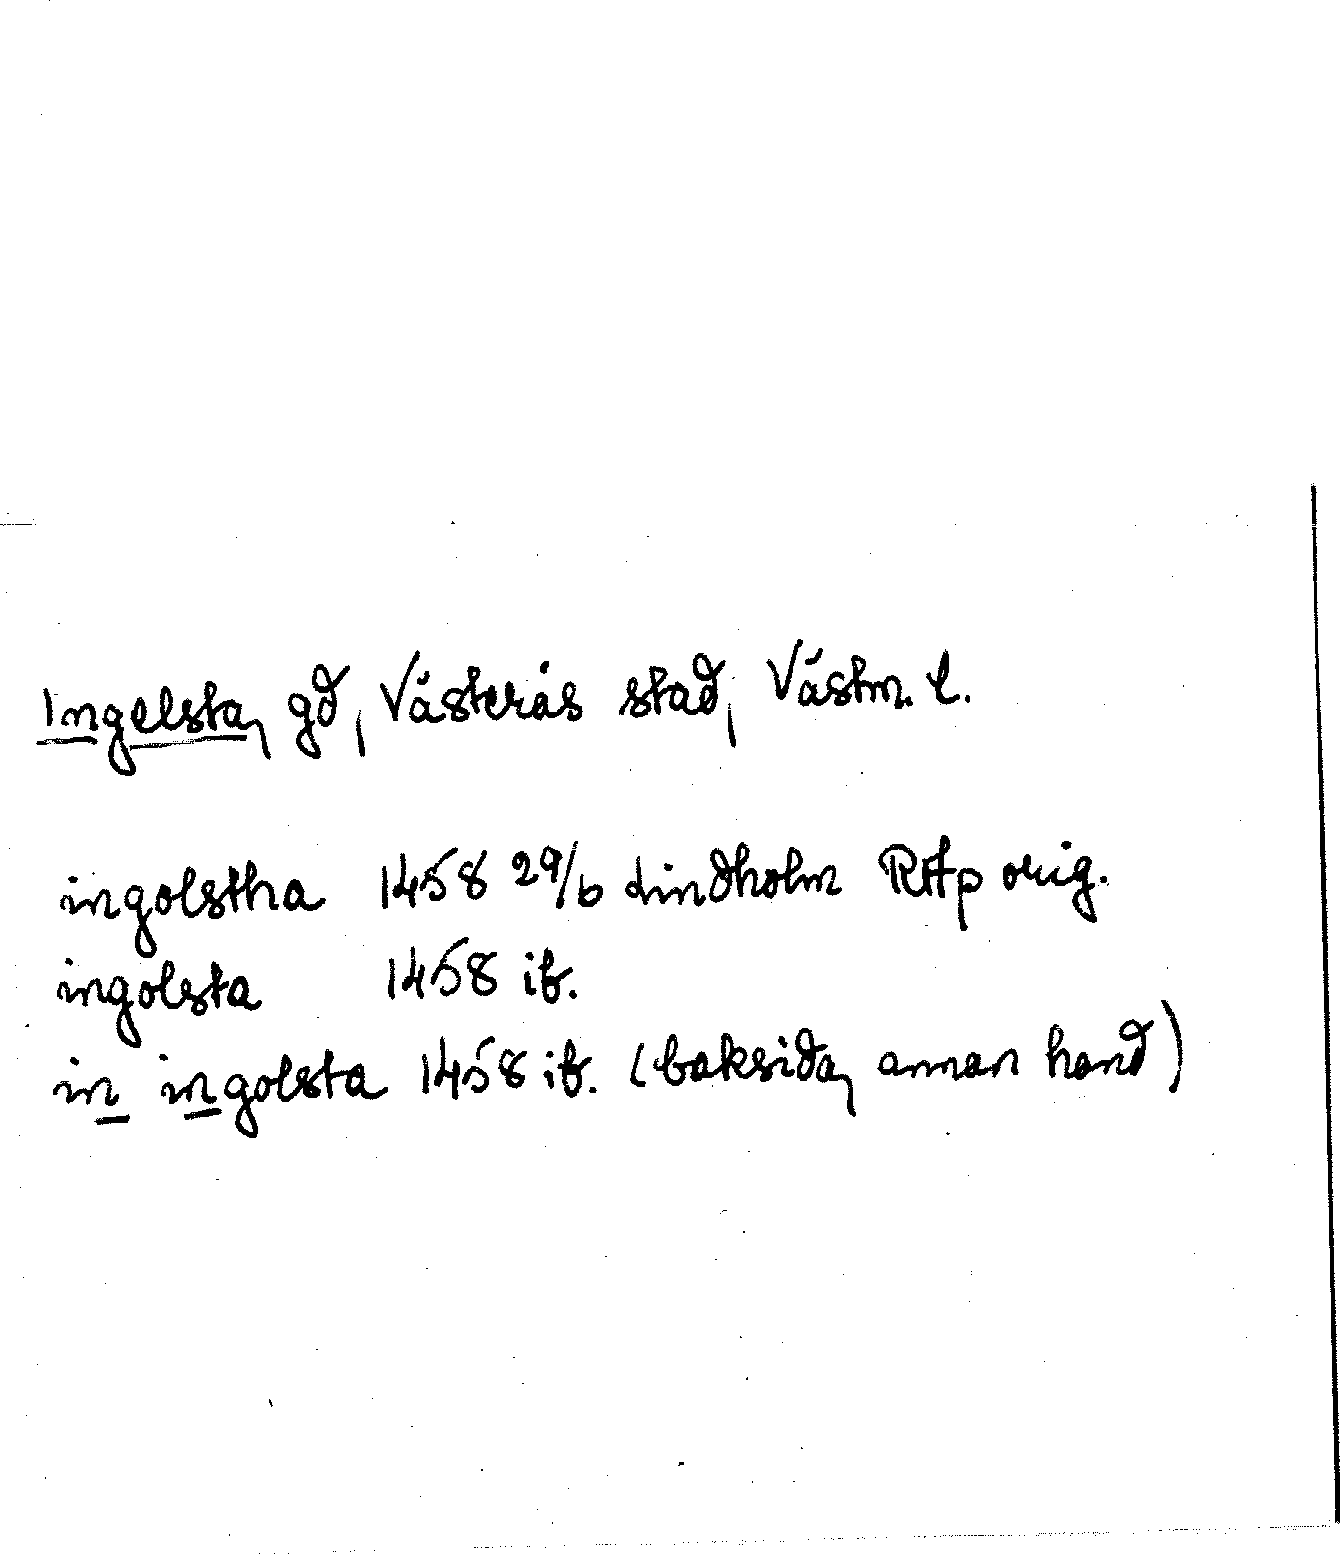 Ingelsta, gd, Västerås stad, Västm. l.
ingolstha 1458 29/6 Lindholm RAp orig.
ingolsta 1458 ib.
in ingolsta 1458 ib. (baksida, annan hand)